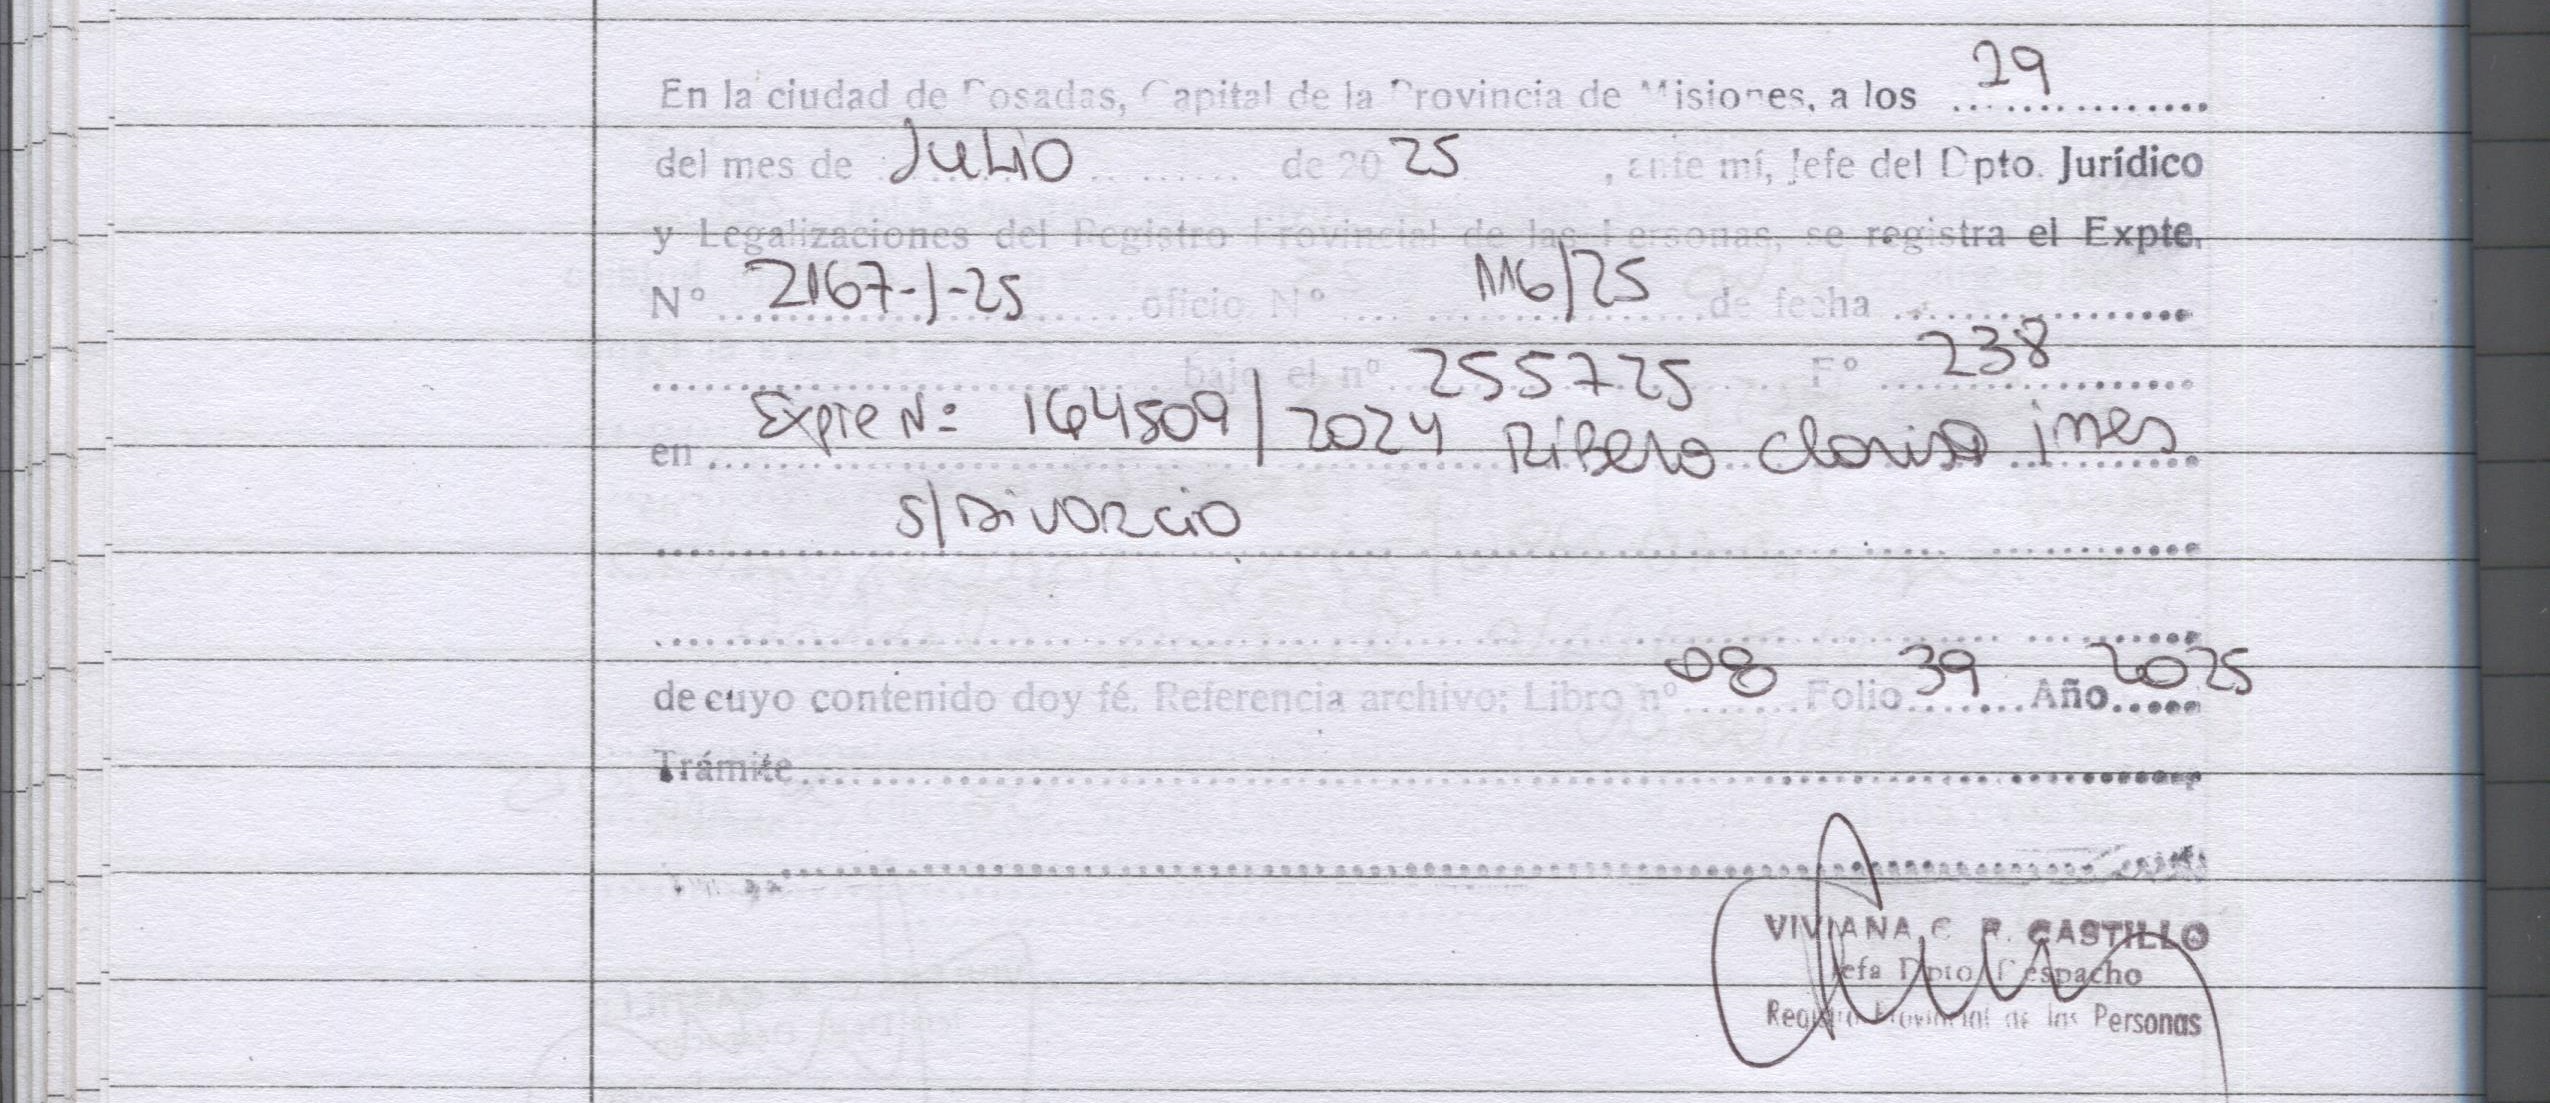 En la ciudad de Posadas, Capital de la Provincia de Misiones, a los 29
del mes de Julio de 20 25, ante mí, Jefe del Dpto. Jurídico
y Legalizaciones del Registro Provincial de las Personas, se registra el Expte.
N° 2167-J-25 oficio N° 1116/25 de fecha
bajo el n° 255725 F° 238
en Expte N°: 164509/2024 Ribero Clarisa ines
s/Divorcio
de cuyo contenido doy fé. Referencia archivo: Libro n° 08 Folio 39 Año 2025
Trámite
VIVIANA C. R. CASTILLO
Jefa Dpto. Despacho
Registro Provincial de las Personas